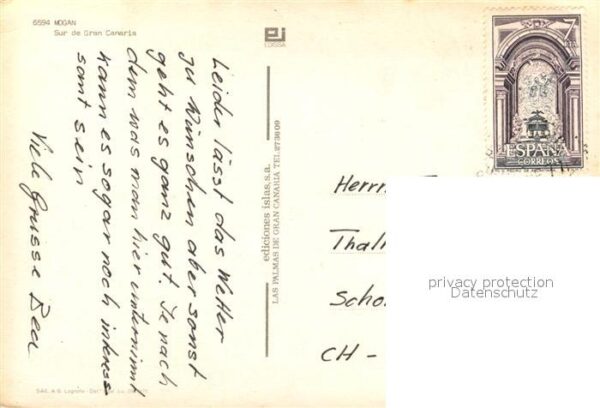 6594 MOGAN
Sur de Gran Canaria
EDIISA
Leider lässt das Wetter
zu Wünschen aber sonst
geht es ganz gut. Je nach
dem was man hier unternimmt
kann es sogar noch interes
sant sein
Viele Grüsse Bea
ediciones islas, s.a.
LAS PALMAS DE GRAN CANARIA TEL 273609
7
PTA
ESPAÑA
CORREOS
Herrn
Thal
CH -
privacy protection
Datenschutz